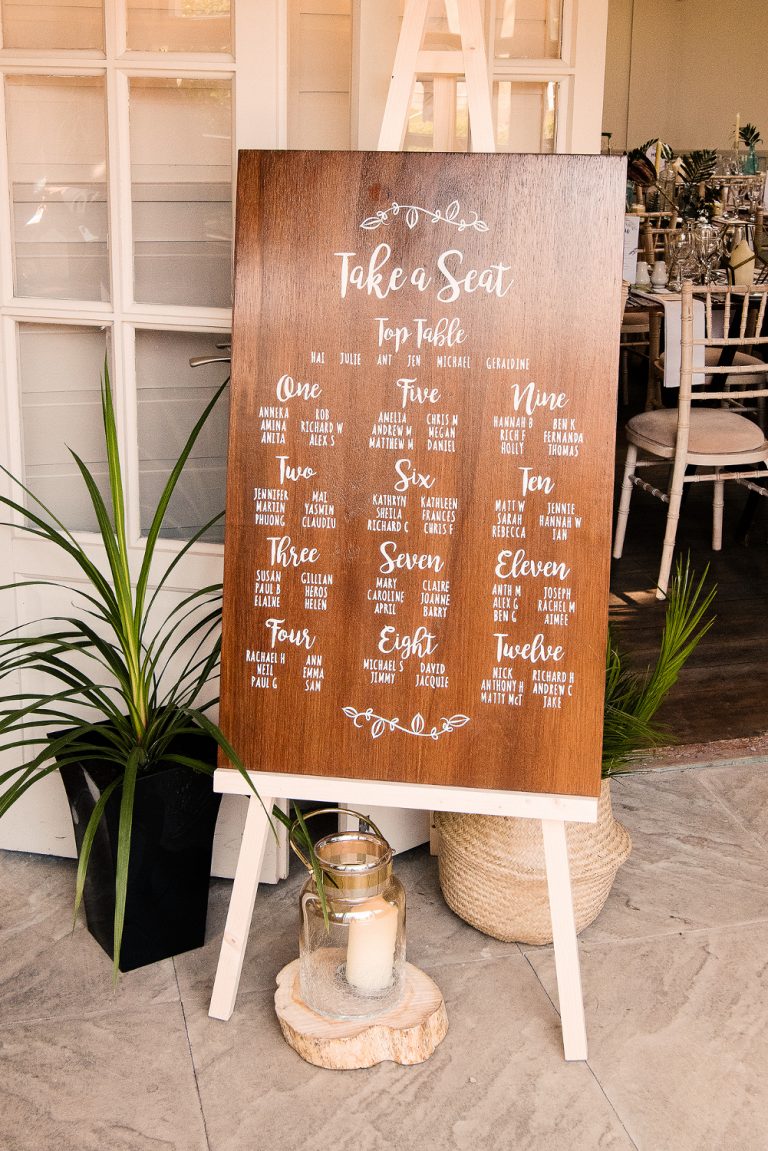 Take a Seat
Top Table
HAI JULIE ANT JEN MICHAEL GERALDINE
One
ANNEKA ROB
AMINA RICHARD W
ANITA ALEX S
Two
JENNIFER MAI
MARTIN YASMIN
PHUONG CLAUDIU
Three
SUSAN GILLIAN
PAUL B HEROS
ELAINE HELEN
Four
RACHAEL H ANN
NEIL EMMA
PAUL G SAM
Five
AMELIA CHRIS M
ANDREW M MEGAN
MATTHEW M DANIEL
Six
KATHRYN KATHLEEN
SHEILA FRANCES
RICHARD C CHRIS F
Seven
MARY CLAIRE
CAROLINE JOANNE
APRIL BARRY
Eight
MICHAEL S DAVID
JIMMY JACQUIE
Nine
HANNAH B BEN K
RICH F FERNANDA
HOLLY THOMAS
Ten
MATT W JENNIE
SARAH HANNAH W
REBECCA IAN
Eleven
ANTH M JOSEPH
ALEX G RACHEL M
BEN G AIMEE
Twelve
NICK RICHARD H
ANTHONY H ANDREW C
MATTY McT JAKE